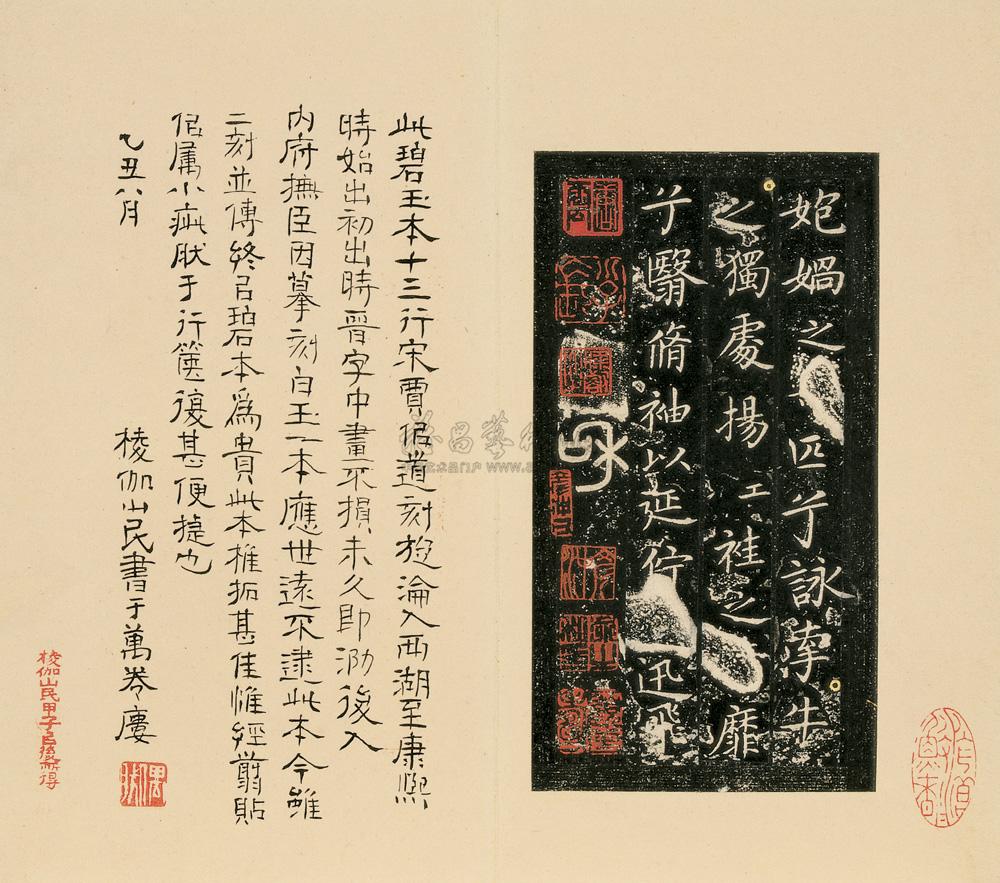 媧之匹兮詠牽牛
之獨處揚袿之靡
兮翳脩袖以延佇迅飛
此碧玉本十三行宋賈佀道刻旋淪入西湖至康熙
時始出初出時晉字中畫不損未久即泐後入
内府撫臣因摹刻白玉一本應世遠不逮此本今雖
二刻並傳終㠯碧本爲貴此本椎拓甚佳惟經翦貼
佀屬小疵肰于行篋復甚便捷也
乙丑八月
棱伽山民書于萬卷廔
棱伽山民甲子㠯後所得